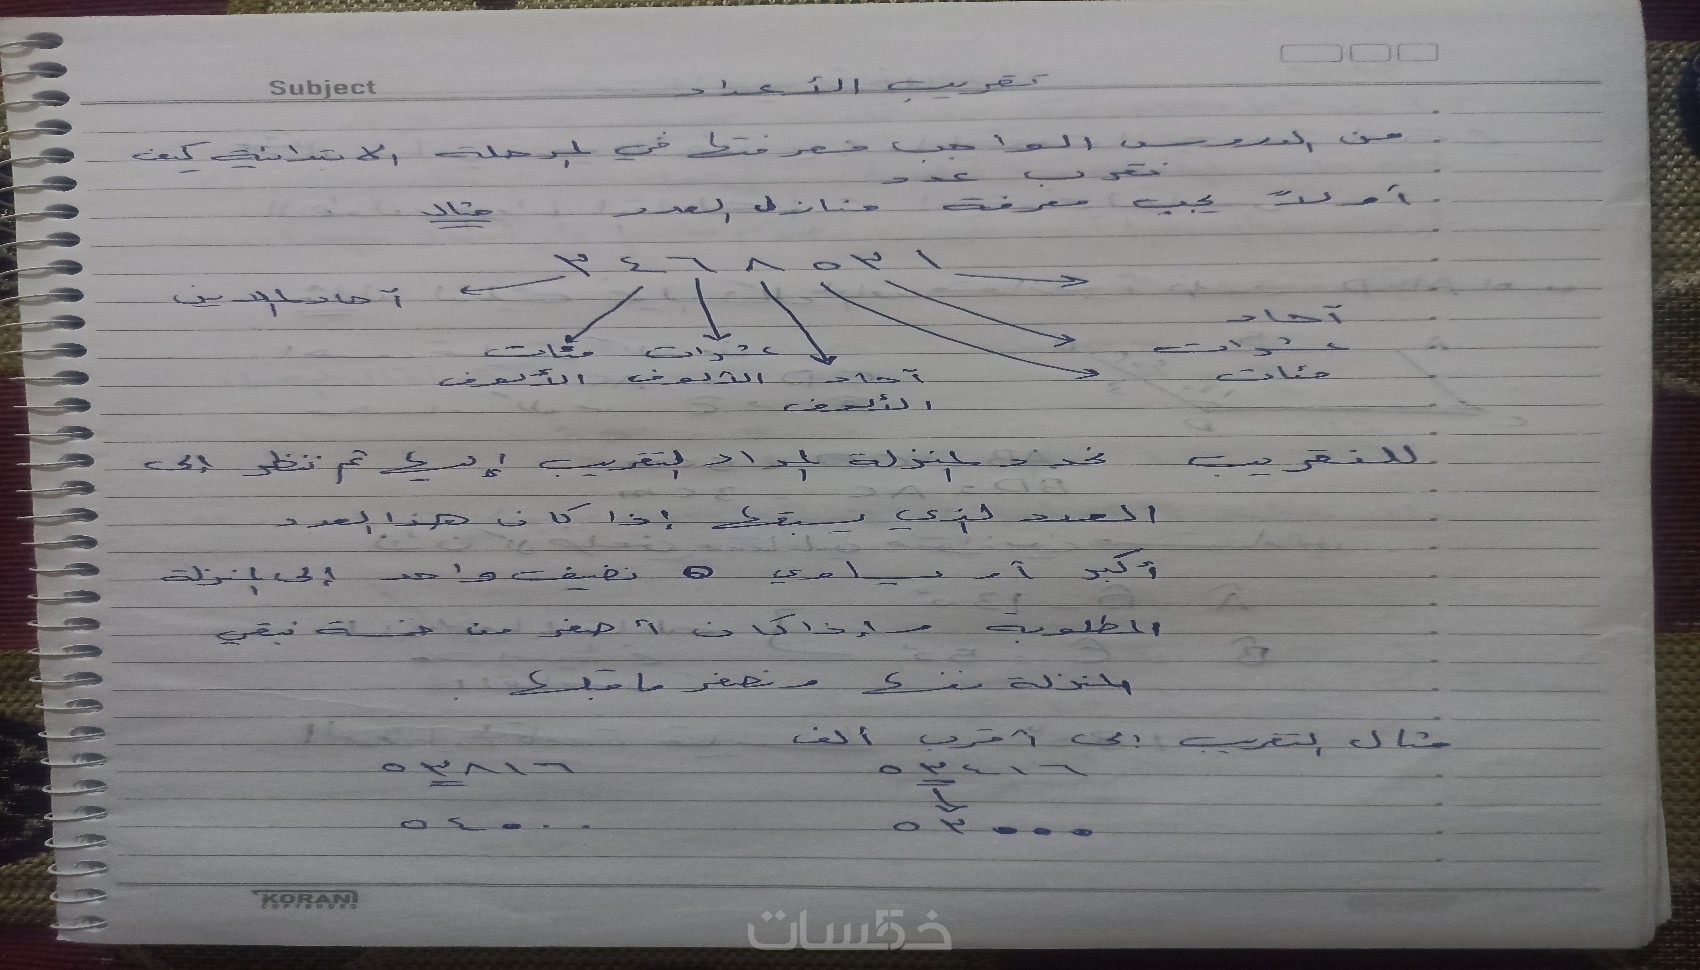 Subject
تقريب الأعداد
من الدروس الواجب معرفتها في المرحلة الابتدائية كيف
نقرب عدد
أولاً يجب معرفة منازل العدد مثال
٣٤٦٨٥٣١
آحاد الملايين
آحاد
عشرات مئات
عشرات
آحاد الألوف الألوف
مئات
الألوف
للتقريب نحدد المنزلة المراد التقريب إليها ثم ننظر إلى
العدد الذي يسبقها إذا كان هذا العدد
أكبر أو يساوي ٥ نضيف واحد إلى المنزلة
المطلوبة وإذا كان أصغر من خمسة نبقي
المنزلة نفسها ونصفر ما قبلها
مثال التقريب إلى أقرب ألف
٥٣٤١٦ ٥٣٨١٦
٥٣٠٠٠ ٥٤٠٠٠
KORANI
COPYBOOKS
خمسات